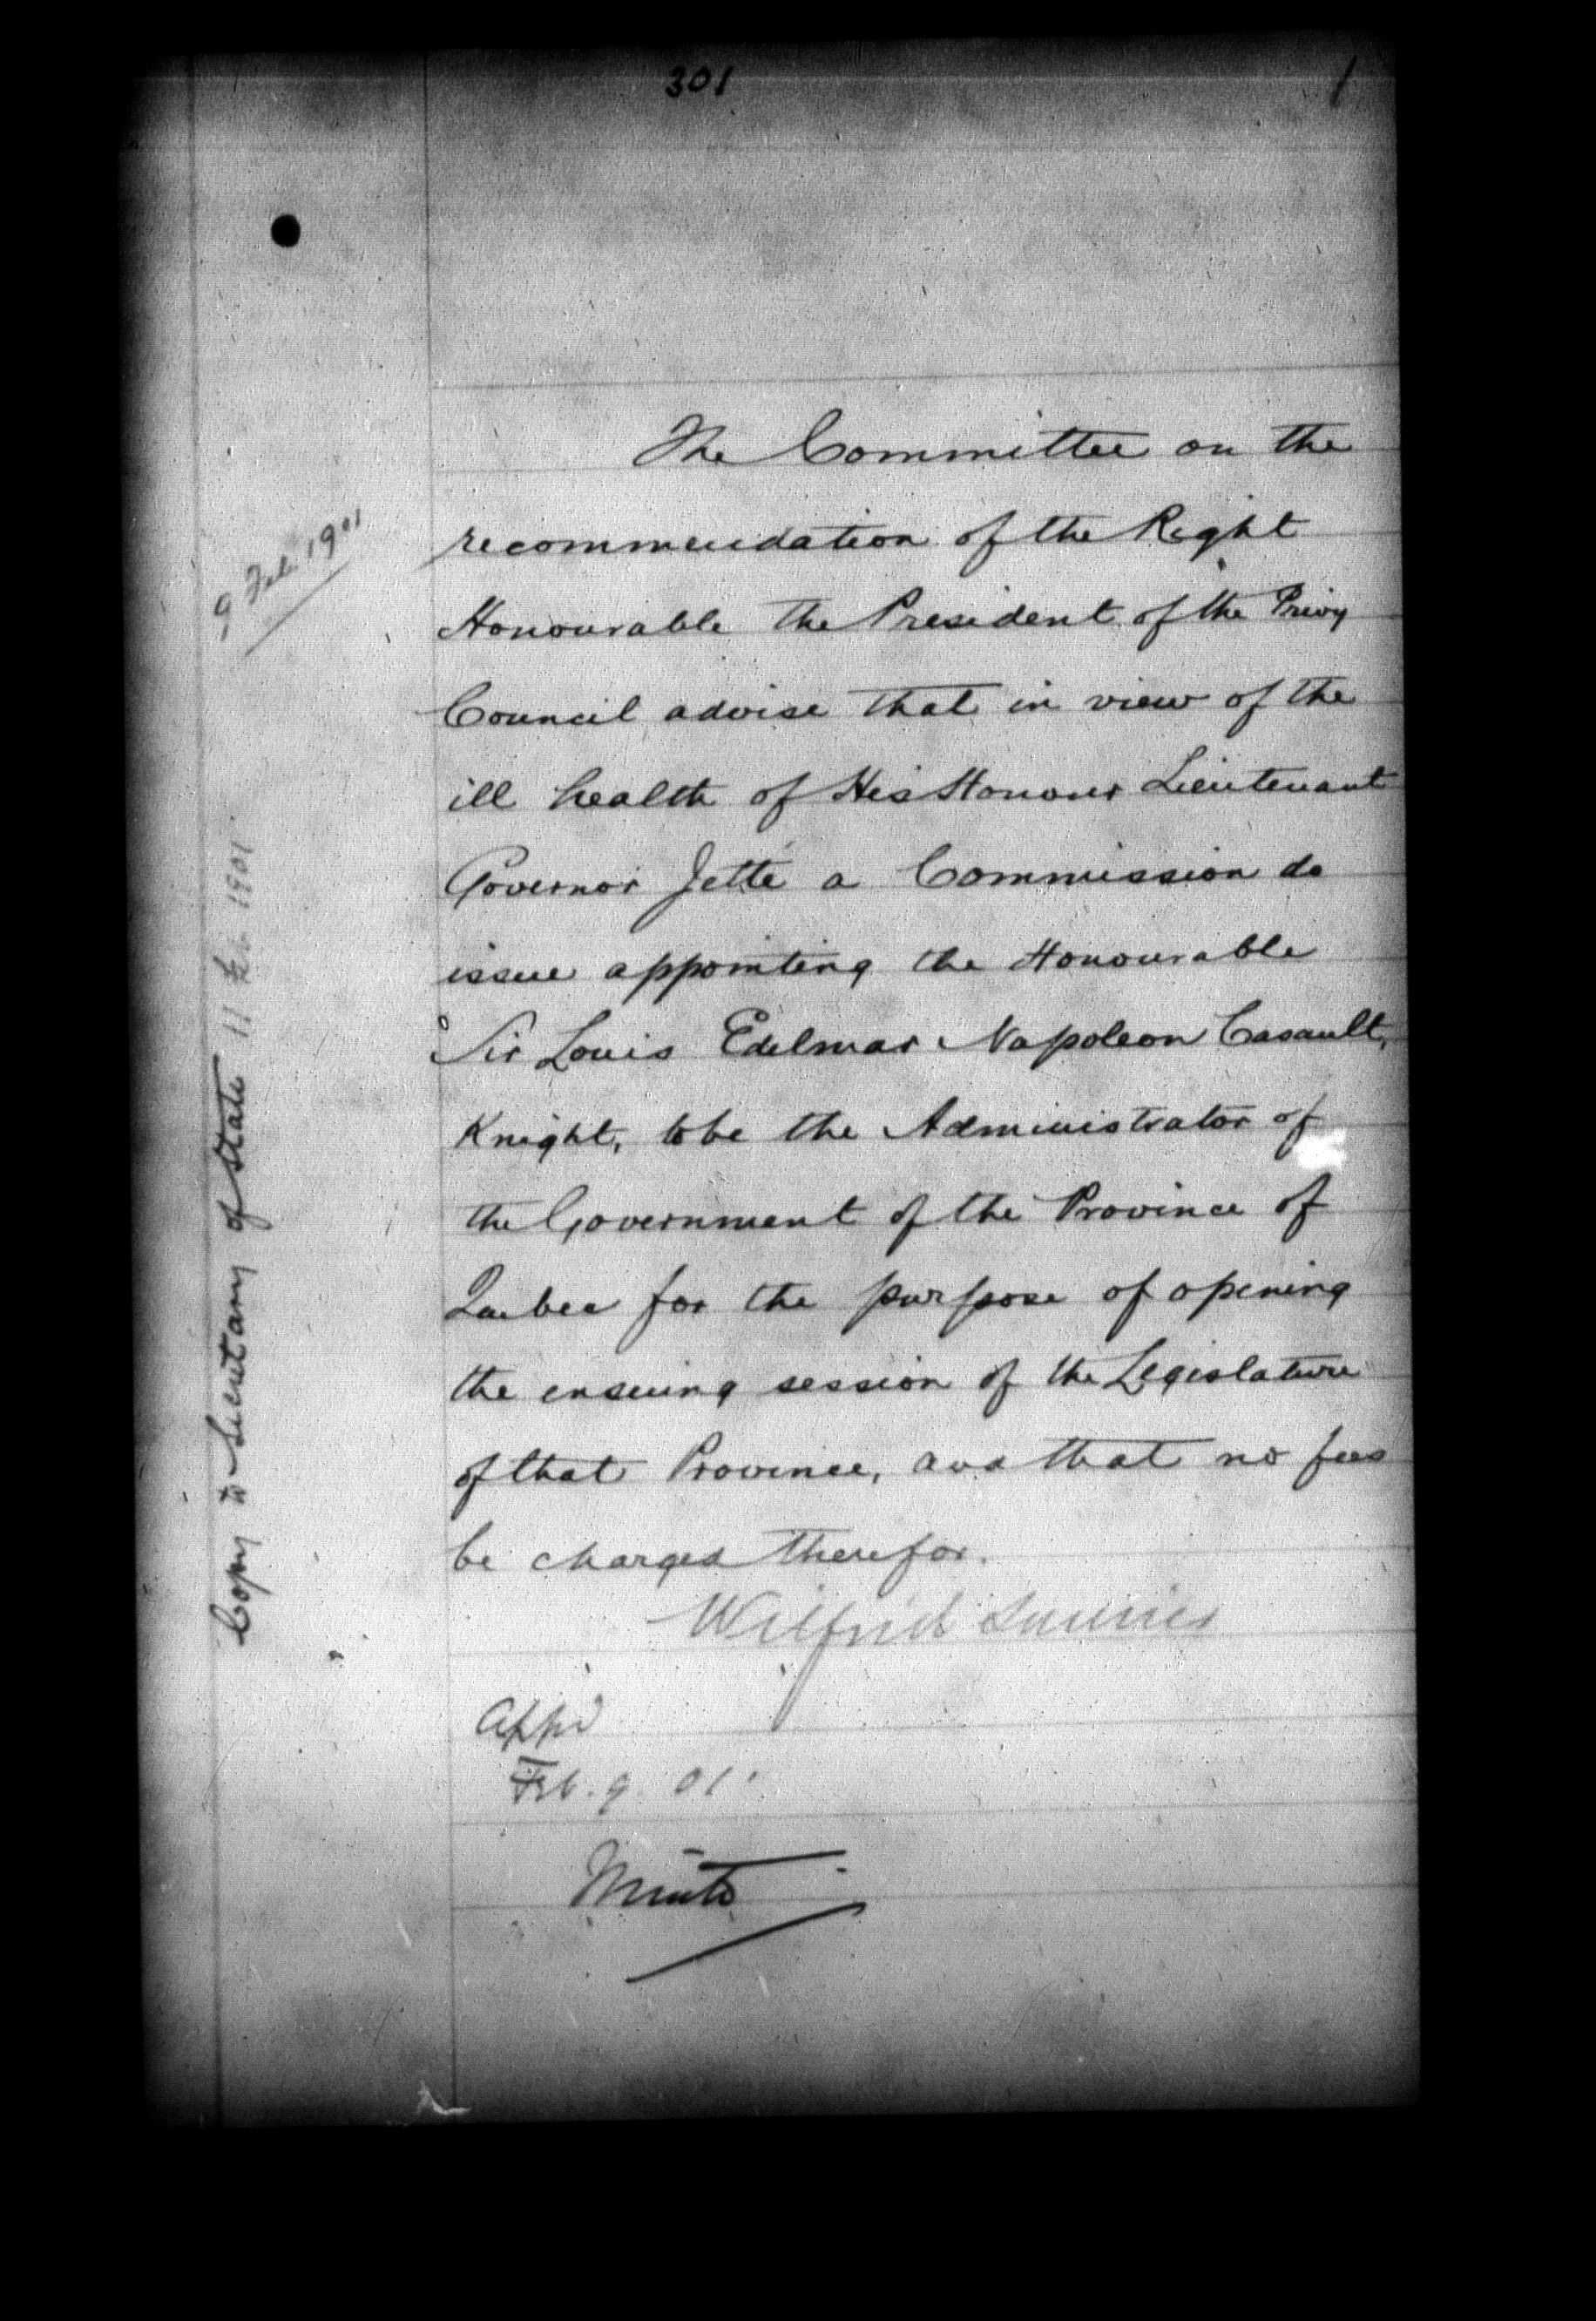 301
1
The Committee on the
recommendation of the Right
Honourable the President of the Privy
Council advise that in view of the
ill health of His Honour Lieutenant
Governor Jetté a Commission do
issue appointing the Honourable
Sir Louis Edelmar Napoleon Casault,
Knight, to be the Administrator of
the Government of the Province of
Quebec for the purpose of opening
the ensuing session of the Legislature
of that Province, and that no fees
be charged therefor.
Wilfrid Laurier
Appd
Feb. 9. 01.
Minto
9 Feb. 1901
Copy to Secretary of State 11 Feb. 1901